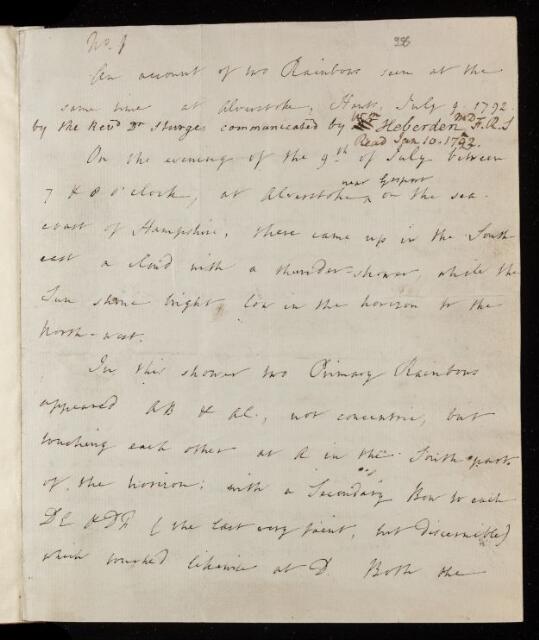 No. 1
226
An account of two Rainbows seen at the
same time at Alverstoke, Hants, July 9. 1792
by the Revd Dr Sturges communicated by Wm Heberden MD F.R.S
Read Jan 10. 1793.
On the evening of the 9th of July between
7 & 8 o'clock, at Alverstoke near Gosport on the sea
coast of Hampshire, there came up in the South
east a cloud with a thunder-shower, while the
Sun shone bright low in the horizon to the
North-west.
In this shower two Primary Rainbows
appeared AB & AC, not concentric, but
touching each other at A in the South part
of the horizon; with a Secondary Bow to each
DE & DF (the last very faint, but discernible)
which touched likewise at D. Both the